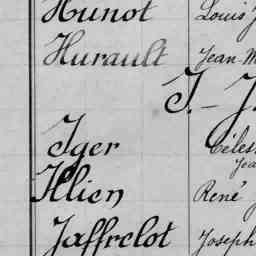 Hunot Louis J
Hurault Jean-M
I.- J
Iger Céles
Jea
Illien René
Jaffrelot Joseph